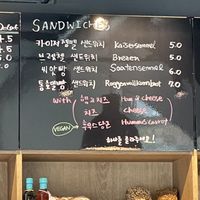 SANDWICHES
카이저젬멜 샌드위치 Kaisersemmel 5.0
브레첼 샌드위치 Brezen 5.0
씨앗빵 샌드위치 Saatensemmel 6.0
통호밀빵 샌드위치 Roggenvollkornbrot 7.0
with 햄&치즈 Ham & cheese
치즈 cheese
VEGAN 후무스당근 Hummus Carrot